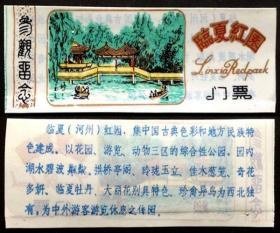 参观留念
临夏红园
LinxiaRedpark
门票
临夏（河州）红园，集中国古典色彩和地方民族特
色建成，以花园、游览、动物三区的综合性公园。园内
湖水碧波粼粼，拱桥亭阁、玲珑玉立，佳木葱茏、奇花
多妍，临夏牡丹、大丽花别具特色，珍禽异鸟为西北独
有，为中外游客游览休息之佳园。